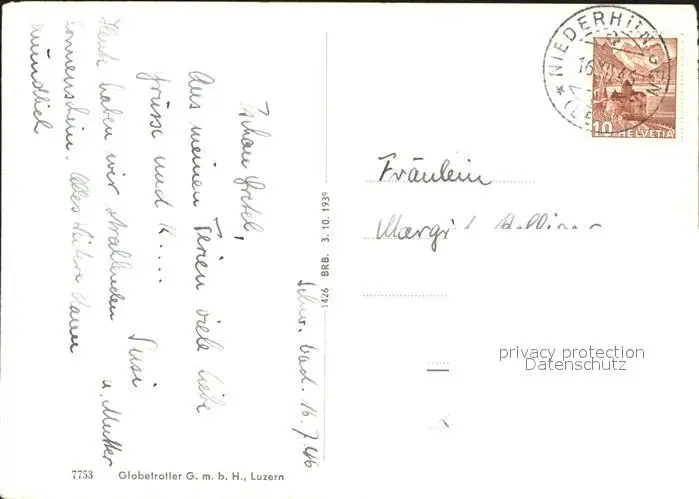 Schw. Bad. 16.7.46
Tschau Gretel,
Aus meinen Ferien viele liebe
Grüsse und K.....
Susi
u. Mutter
Heute haben wir strahlenden
Sonnenschein. Alles Weitere dann
mündlich
1426 BRB. 3.10.1939
Fräulein
Margi
NIEDERHÜN
16
46
10 HELVETIA
privacy protection
Datenschutz
7753 Globetrotter G. m. b. H., Luzern